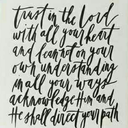 trust in the Lord
with all your heart
and lean not on your
own understanding
in all your ways
acknowledge Him and
He shall direct your path